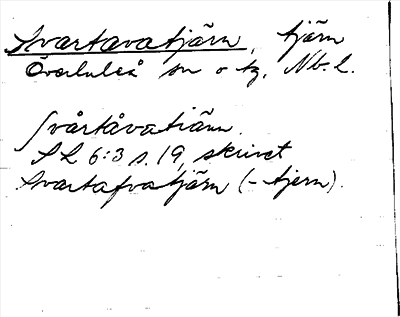 Svartavatjärn, tjärn
Överluleå sn o tg, Nb. l.
svårtåvatiänn.
SL 6:3 s. 19, skrivet
Svartafvatjärn (-tjern).